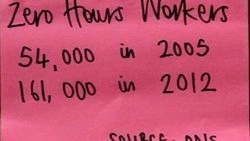 Zero Hours Workers
54,000 in 2005
161,000 in 2012
SOURCE: ONS